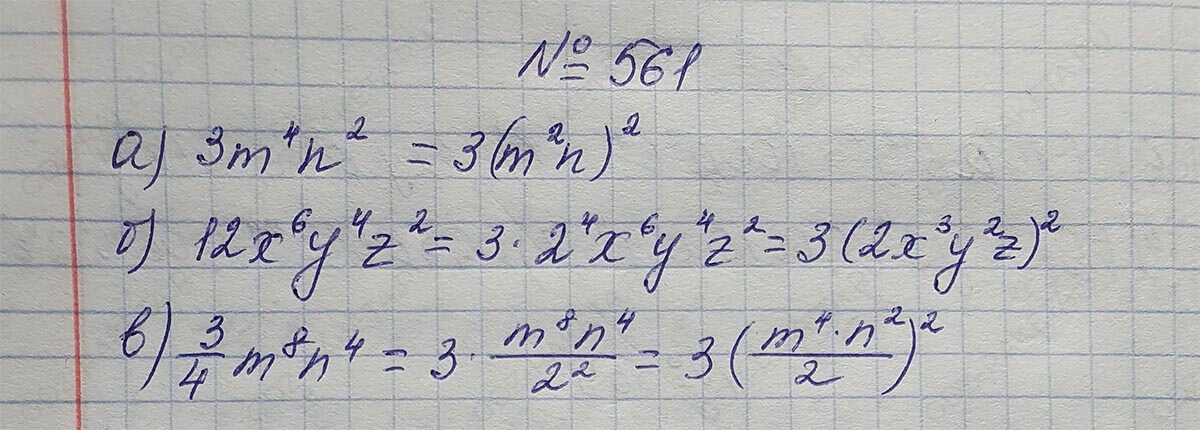 № 561
а) 3m⁴n² = 3(m²n)²
б) 12x⁶y⁴z² = 3·2⁴x⁶y⁴z² = 3(2x³y²z)²
в) 3/4 m⁸n⁴ = 3· m⁸n⁴/2² = 3(m⁴·n²/2)²